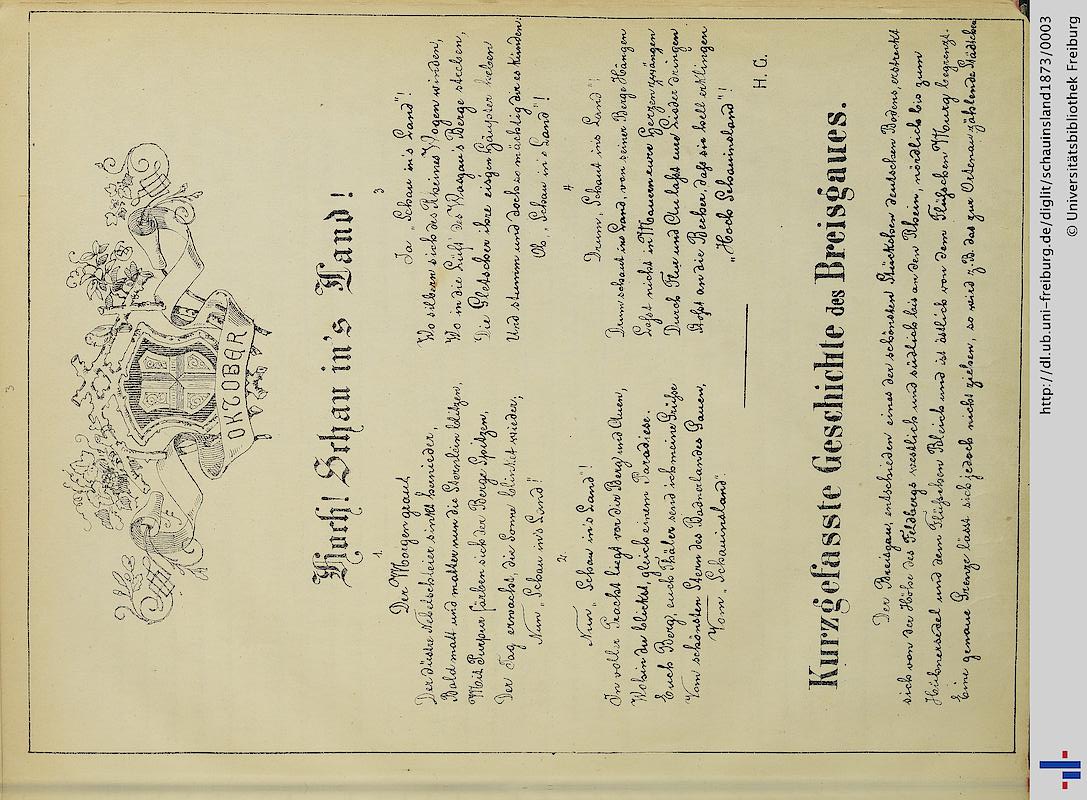 3
OKTOBER
Hoch! Schau in's Land!
1.
Der Morgen graut
Der düstre Nebelschleier sinkt hernieder,
Bald matt und matter nun die Sternlein blitzen,
Mit Purpur färben sich der Berge Spitzen,
Der Tag erwacht, die Sonne blinket wieder;
Nun „Schau in's Land"!
2.
Nun „Schau in's Land"!
In voller Pracht liegt vor dir Berg und Auen,
Wohin du blickst, gleich einem Paradiese.
Euch Berg, euch Thäler send ich meine Grüße
Vom schönsten Stern des Badnerlandes Gauen,
Vom „Schauinsland"
3
Ja „Schau in's Land"!
Wo silbern sich des Rheines Wogen winden,
Wo in die Lüft des Wasgau's Berge streben,
Die Gletscher ihre eisgen Häupter heben
Und stumm und doch so mächtig dir es künden:
Ob „Schau in's Land"!
4
Drum „Schaut ins Land"!
Drum schaut ins Land, von seiner Berge Hängen
Laßt nicht in Mauern eure Herzen zwängen
Durch Flur und Au laßt eure Lieder dringen
Stoßt an die Becher daß sie hell erklingen
„Hoch Schauinsland"!
H. G.
Kurzgefasste Geschichte des Breisgaues.
Der Breisgau, entschieden eines der schönsten Stückchen deutschen Bodens, erstreckt
sich von der Höhe des Feldbergs westlich und südlich bis an den Rhein, nördlich bis zum
Hühnersedel und dem Flüßchen Bleich und ist östlich von dem Flüßchen Murg begrenzt.
Eine genaue Grenze lässt sich jedoch nicht ziehen, so wird z.B. das zur Ortenau zählende Städtchen
http://dl.ub.uni-freiburg.de/diglit/schauinsland1873/0003
© Universitätsbibliothek Freiburg